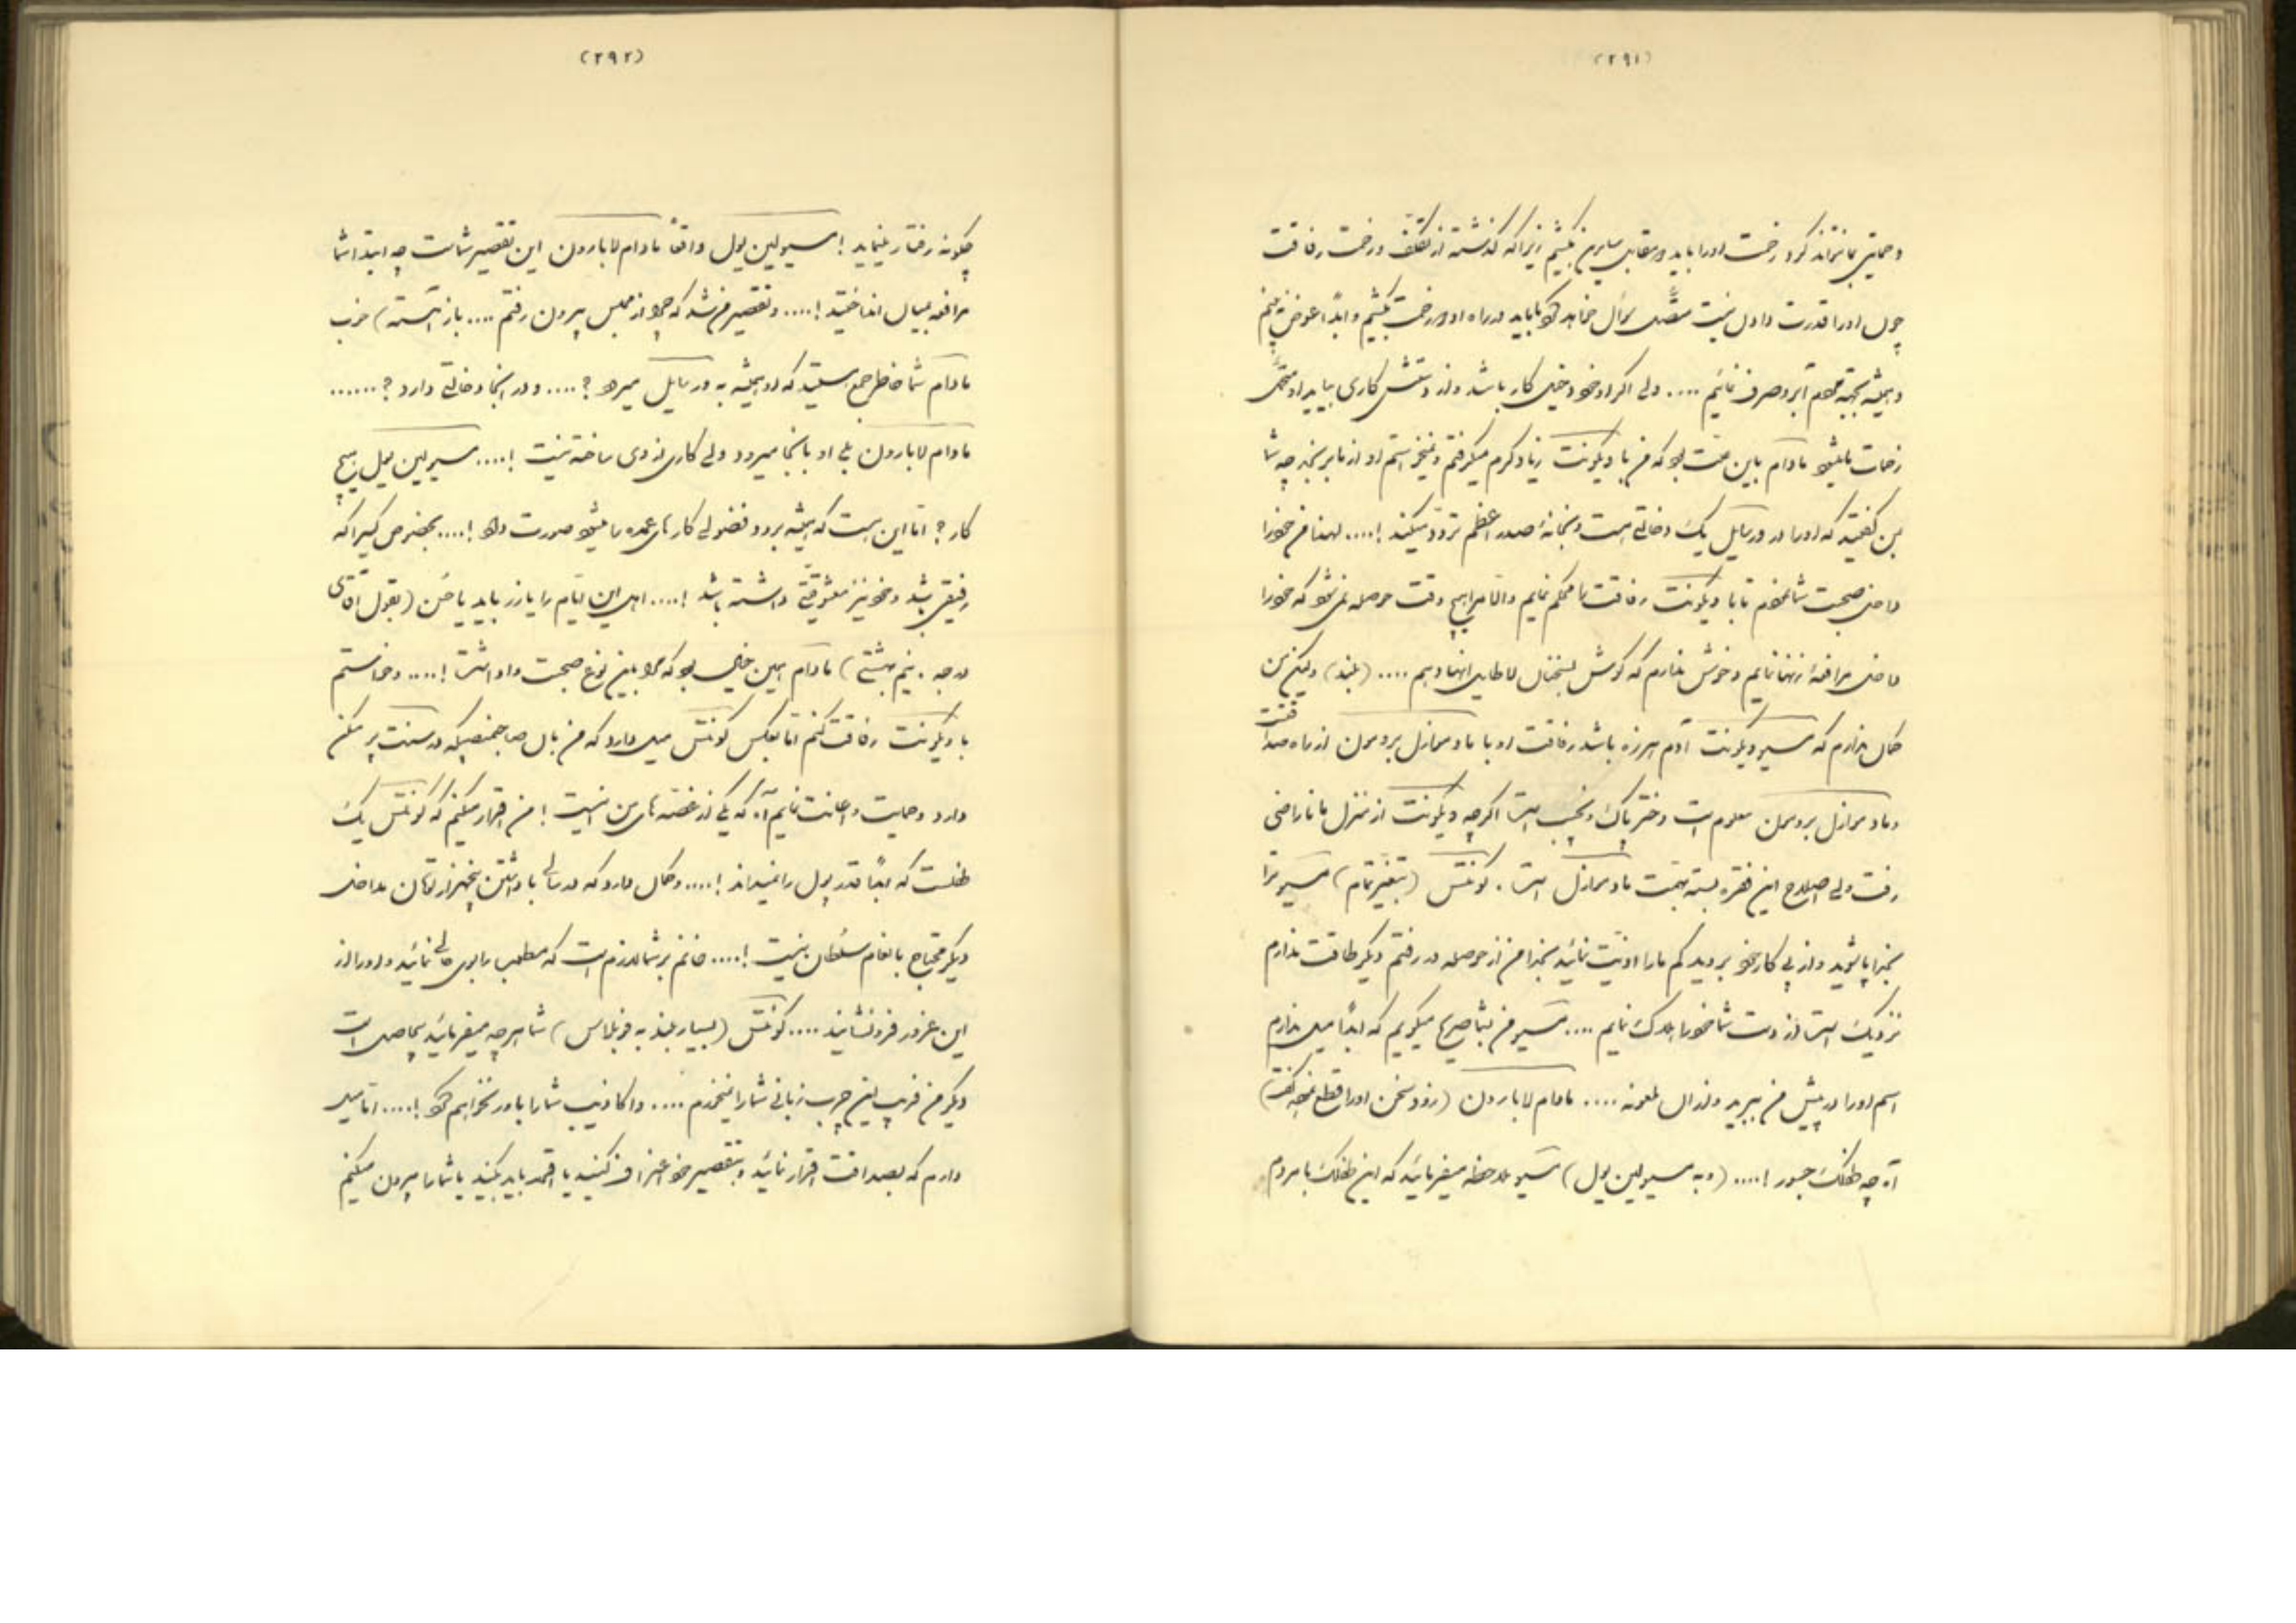 (۲۹۱)
و حمایتی بما نتواند کرد زحمت او را باید در مقابل سایرین بکشیم زیرا که گذشته از تکلف و زحمت رفاقت
چون او را قدرت دادن نیست متصل سؤال خواهد کرد ما باید در راه او زحمت بکشیم و ابداً عوض نبینیم
و همیشه بجهة مردم آبرو صرف نمائیم .... ولی اگر او خود دخیل کار باشد و از دستش کاری بیاید او متحمل
زحمات ما میشود مادام باین جهت بود که من با ویکونت زیاد گرم میگرفتم و نمیخواستم او از ما برنجد چه شما
بمن گفتید که او را در ورسایل یک دخالتی هست و بخانهٔ صدر اعظم تردد میکند !.... لهذا من خود را
داخل صحبت شما نمودم تا با ویکونت رفاقت را محکم نمایم والا مرا هیچ وقت حوصله نمی‌شود که خود را
داخل مرافعهٔ زنها نمایم و خوش ندارم که گوش بسخنان لاطایل آنها دهم .... (بلند) ولیکن من
گمان ندارم که مسیو ویکونت آدم هرزه باشد رفاقت او با مادموازل بروسون از راه صداقتست
و مادموازل بروسون معلوم است دختر پاک و نجیب است اگرچه ویکونت از منزل ما ناراضی
رفت ولی اصلاح این فقره بسته بهمت مادموازل است . کونتس (بتغیر تمام) مسیو ترا
بخدا پا شوید و از پی کار خود بروید کم ما را اذیت نمائید بخدا من از حوصله در رفتم دیگر طاقت ندارم
نزدیک است از دست شما خود را هلاک نمایم .... مسیو من بشما صریح میگویم که ابداً میل ندارم
اسم او را در پیش من ببرید و از آن ملعونه .... مادام لابارون (زود سخن او را قطع نموده گفت)
آه چه طفلک جسور !.... (و به مسیولین‌پول) مسیو ملاحظه میفرمائید که این طفلک با مردم
(۲۹۲)
چگونه رفتار مینماید ! مسیولین‌پول واقعاً مادام لابارون این تقصیر شماست چه ابتدا شما
مرافعه بمیان انداختید !.... و تقصیر من شد که چرا از مجلس بیرون رفتم .... باز (آهسته) خوب
مادام شما خاطر جمع هستید که او همیشه به ورسایل میرود ؟.... و در آنجا دخالتی دارد ؟......
مادام لابارون بلی او بآنجا میرود ولی کاری از وی ساخته نیست !.... مسیولین‌پول هیچ
کار ؟ اما این هست که همیشه برود فضولی کارهای عمده را میشود صورت داد !.... بخصوص کسیرا که
رفیقی باشد و خود نیز معشوقه‌ٔ داشته باشد !.... اهل این ایام را یا زر باید یا حسن (بقول آقای
درجه . نیم بهشتی) مادام همین خیال بود که مرا باین نوع صحبت وا داشت !.... و خواستم
با ویکونت رفاقت کنم اما بعکس کونتس میل دارد که من بآن صاحبمنصبیکه در سنت پر مسکن
دارد و حمایت و اعانت نمایم آه که یکی از غصه‌های من اینست ! من اقرار میکنم که کونتس یک
طفلست که ابداً قدر پول را نمیداند !.... و گمان دارد که در سالی با داشتن پنجهزار تومان مداخل
دیگر محتاج بانعام سلطان نیست !.... خانم بر شما لازم است که مطلب را بوی حالی نمائید و او را از
این غرور فرو نشانید .... کونتس (بسیار بلند به فوبلاس) شما هر چه میفرمائید بیحاصل است
دیگر من فریب این چرب زبانی شما را نمیخورم .... و اکاذیب شما را باور نخواهم کرد !.... اما میل
دارم که بصداقت اقرار نمائید و بتقصیر خود اعتراف کنید یا قمه باید بکنید یا شما را بیرون میکنم